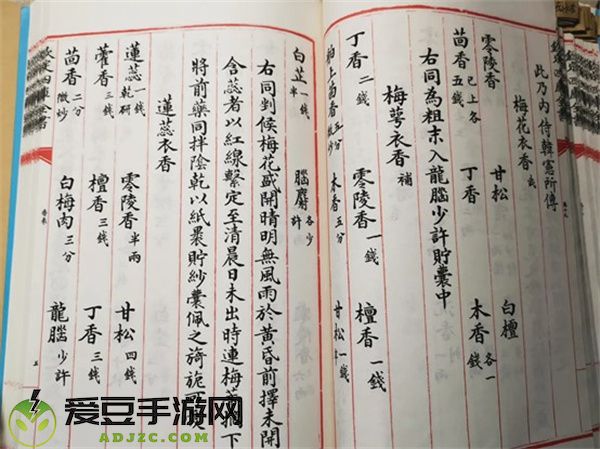 此乃內侍韓憲所傳
梅花衣香 武
零陵香 甘松 白檀
茴香 已上各五錢 丁香 木香 各一錢
右同為粗末入龍腦少許貯囊中
梅萼衣香 補
丁香 二錢 零陵香 一錢 檀香 一錢
舶上茴香 五分微炒 木香 五分 甘松 一錢
白芷 一錢半 腦麝 各少許
右同剉候梅花盛開晴明無風雨於黃昏前擇未開
含蕊者以紅線繫定至清晨日未出時連梅蒂摘下
將前藥同拌陰乾以紙裹貯紗囊佩之旖旎可
蓮蕊衣香
蓮蕊 一錢乾研 零陵香 半兩 甘松 四錢
藿香 三錢 檀香 三錢 丁香 三錢
茴香 二分微炒 白梅肉 三分 龍腦 少許
欽定四庫全書
五
爱豆手游网
ADJZC.COM